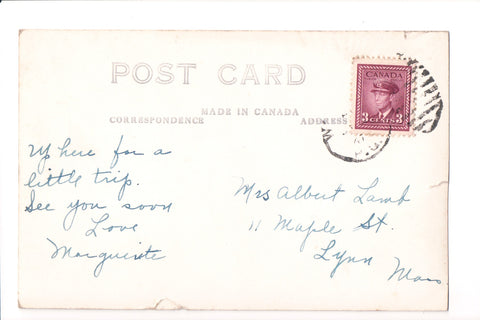 POST CARD
MADE IN CANADA
CORRESPONDENCE
ADDRESS
CANADA
3 CENTS 3
Up here for a
little trip.
See you soon
Love
Marguirite
Mrs Albert Lamb
11 Maple St.
Lynn
Mass